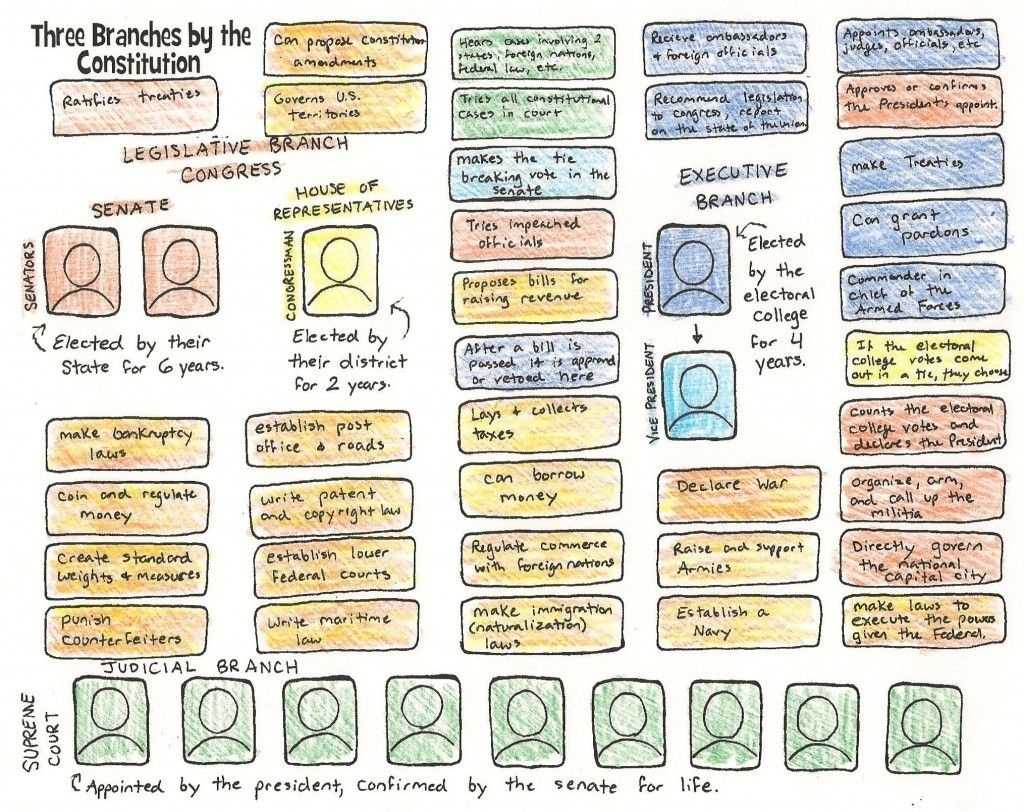 Three Branches by the
Constitution
Ratifies treaties
Can propose Constitution
amendments
Governs U.S.
territories
LEGISLATIVE BRANCH
CONGRESS
SENATE
SENATORS
Elected by their
State for 6 years.
HOUSE OF
REPRESENTATIVES
CONGRESSMAN
Elected by
their district
for 2 years.
make bankruptcy
laws
Coin and regulate
money
Create standard
weights & measures
punish
counterfeiters
establish post
office & roads
write patent
and copyright law
Establish lower
Federal courts
Write maritime
law
Hears cases involving 2
states, foreign nations,
federal law, etc.
Tries all constitutional
cases in court
makes the tie
breaking vote in the
senate
Tries impeached
officials
Proposes bills for
raising revenue
After a bill is
passed it is approved
or vetoed here
Lays & collects
taxes
can borrow
money
Regulate commerce
with foreign nations
make immigration
(naturalization)
laws
Recieve ambassadors
& foreign officials
Recommend legislation
to congress, report
on the state of the union
EXECUTIVE
BRANCH
PRESIDENT
Elected
by the
electoral
college
for 4
years.
VICE PRESIDENT
Declare War
Raise and support
Armies
Establish a
Navy
Appoints ambassadors,
judges, officials, etc
Approves or confirms
the President's appoint.
make Treaties
Can grant
pardons
Commander in
chief of the
Armed Forces
If the electoral
college votes come
out in a tie, they choose
Counts the electoral
college votes and
declares the President
Organize, arm,
and call up the
militia
Directly govern
the national
capital city
make laws to
execute the powers
given the Federal.
JUDICIAL BRANCH
SUPREME
COURT
Appointed by the president, confirmed by the senate for life.